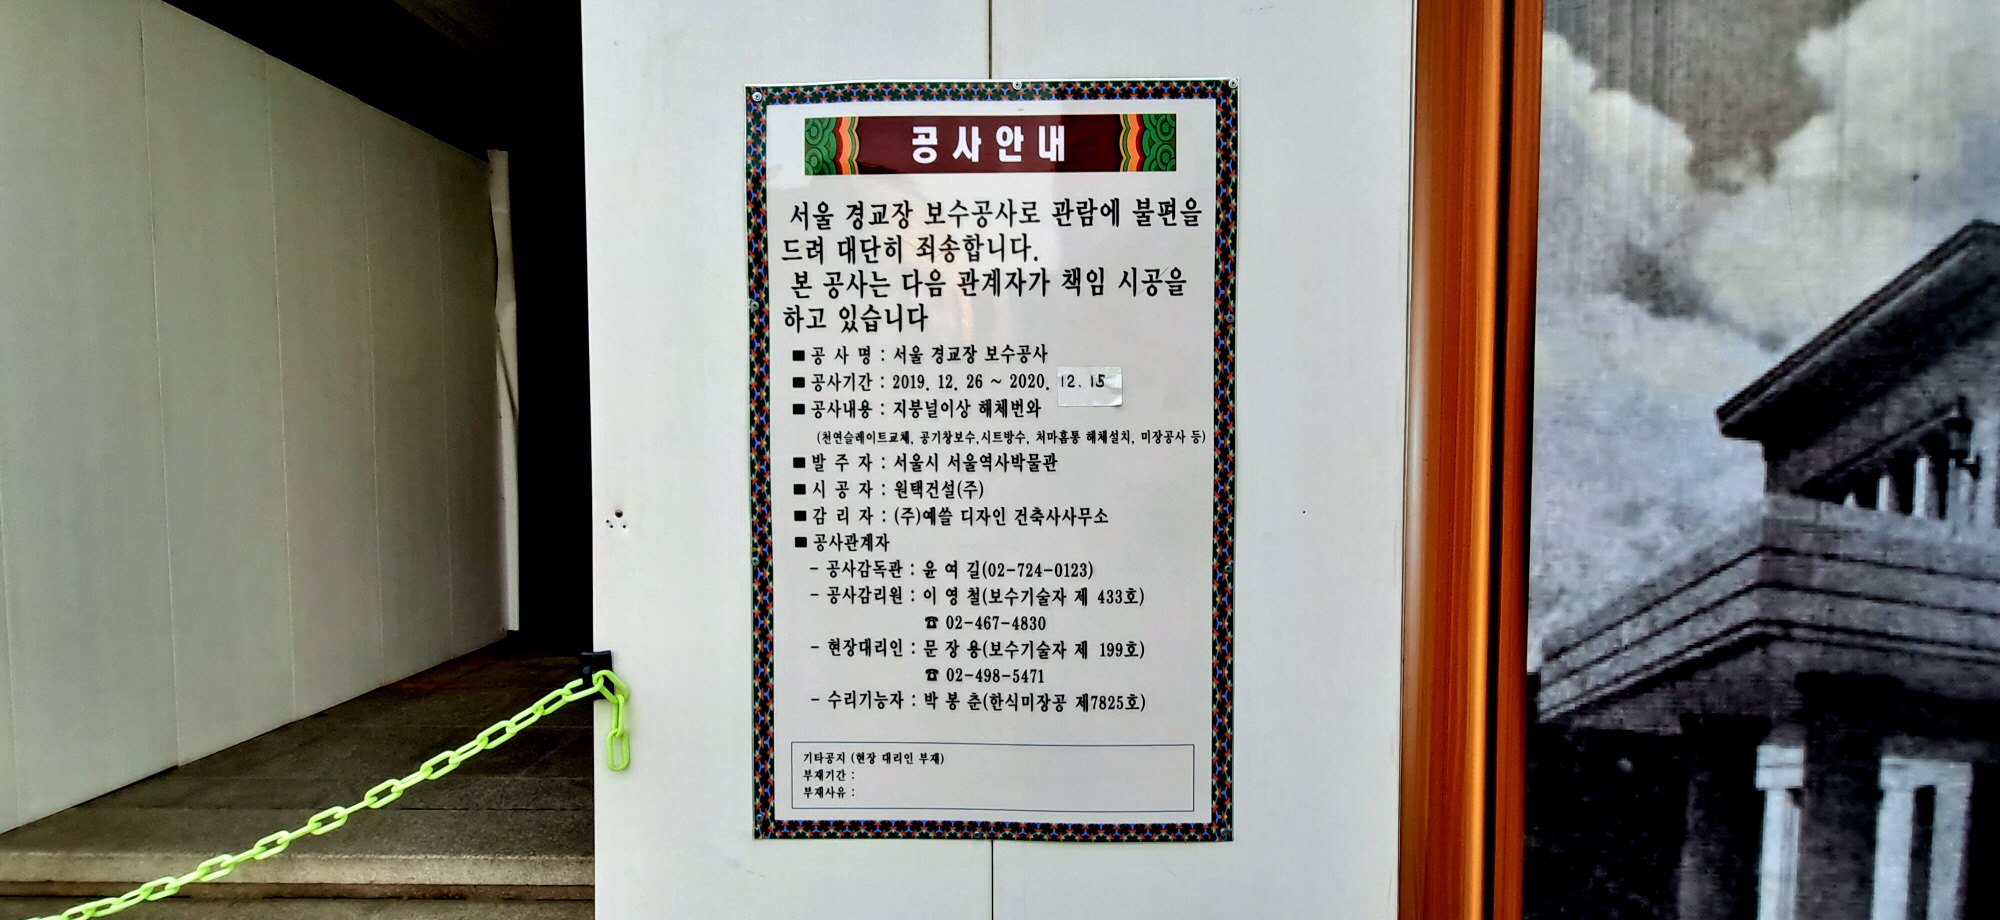 공사안내
서울 경교장 보수공사로 관람에 불편을
드려 대단히 죄송합니다.
본 공사는 다음 관계자가 책임 시공을
하고 있습니다
■ 공 사 명 : 서울 경교장 보수공사
■ 공사기간 : 2019. 12. 26 ~ 2020. 12. 15
■ 공사내용 : 지붕널이상 해체번와
(천연슬레이트교체, 공기창보수,시트방수, 처마홈통 해체설치, 미장공사 등)
■ 발 주 자 : 서울시 서울역사박물관
■ 시 공 자 : 원택건설(주)
■ 감 리 자 : (주)예쓸 디자인 건축사사무소
■ 공사관계자
- 공사감독관 : 윤 여 길(02-724-0123)
- 공사감리원 : 이 영 철(보수기술자 제 433호)
☎ 02-467-4830
- 현장대리인 : 문 장 용(보수기술자 제 199호)
☎ 02-498-5471
- 수리기능자 : 박 봉 춘(한식미장공 제7825호)
기타공지 (현장 대리인 부재)
부재기간 :
부재사유 :